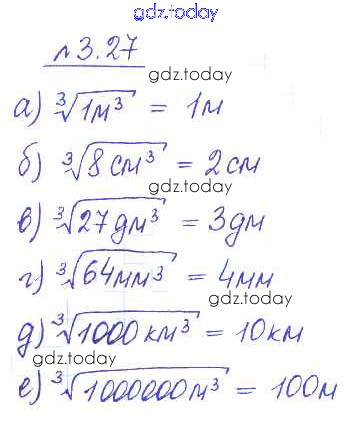 gdz.today
№3.27
gdz.today
а) ∛1м³ = 1м
б) ∛8см³ = 2см
gdz.today
в) ∛27дм³ = 3дм
г) ∛64мм³ = 4мм
gdz.today
д) ∛1000км³ = 10км
gdz.today
е) ∛1000000м³ = 100м